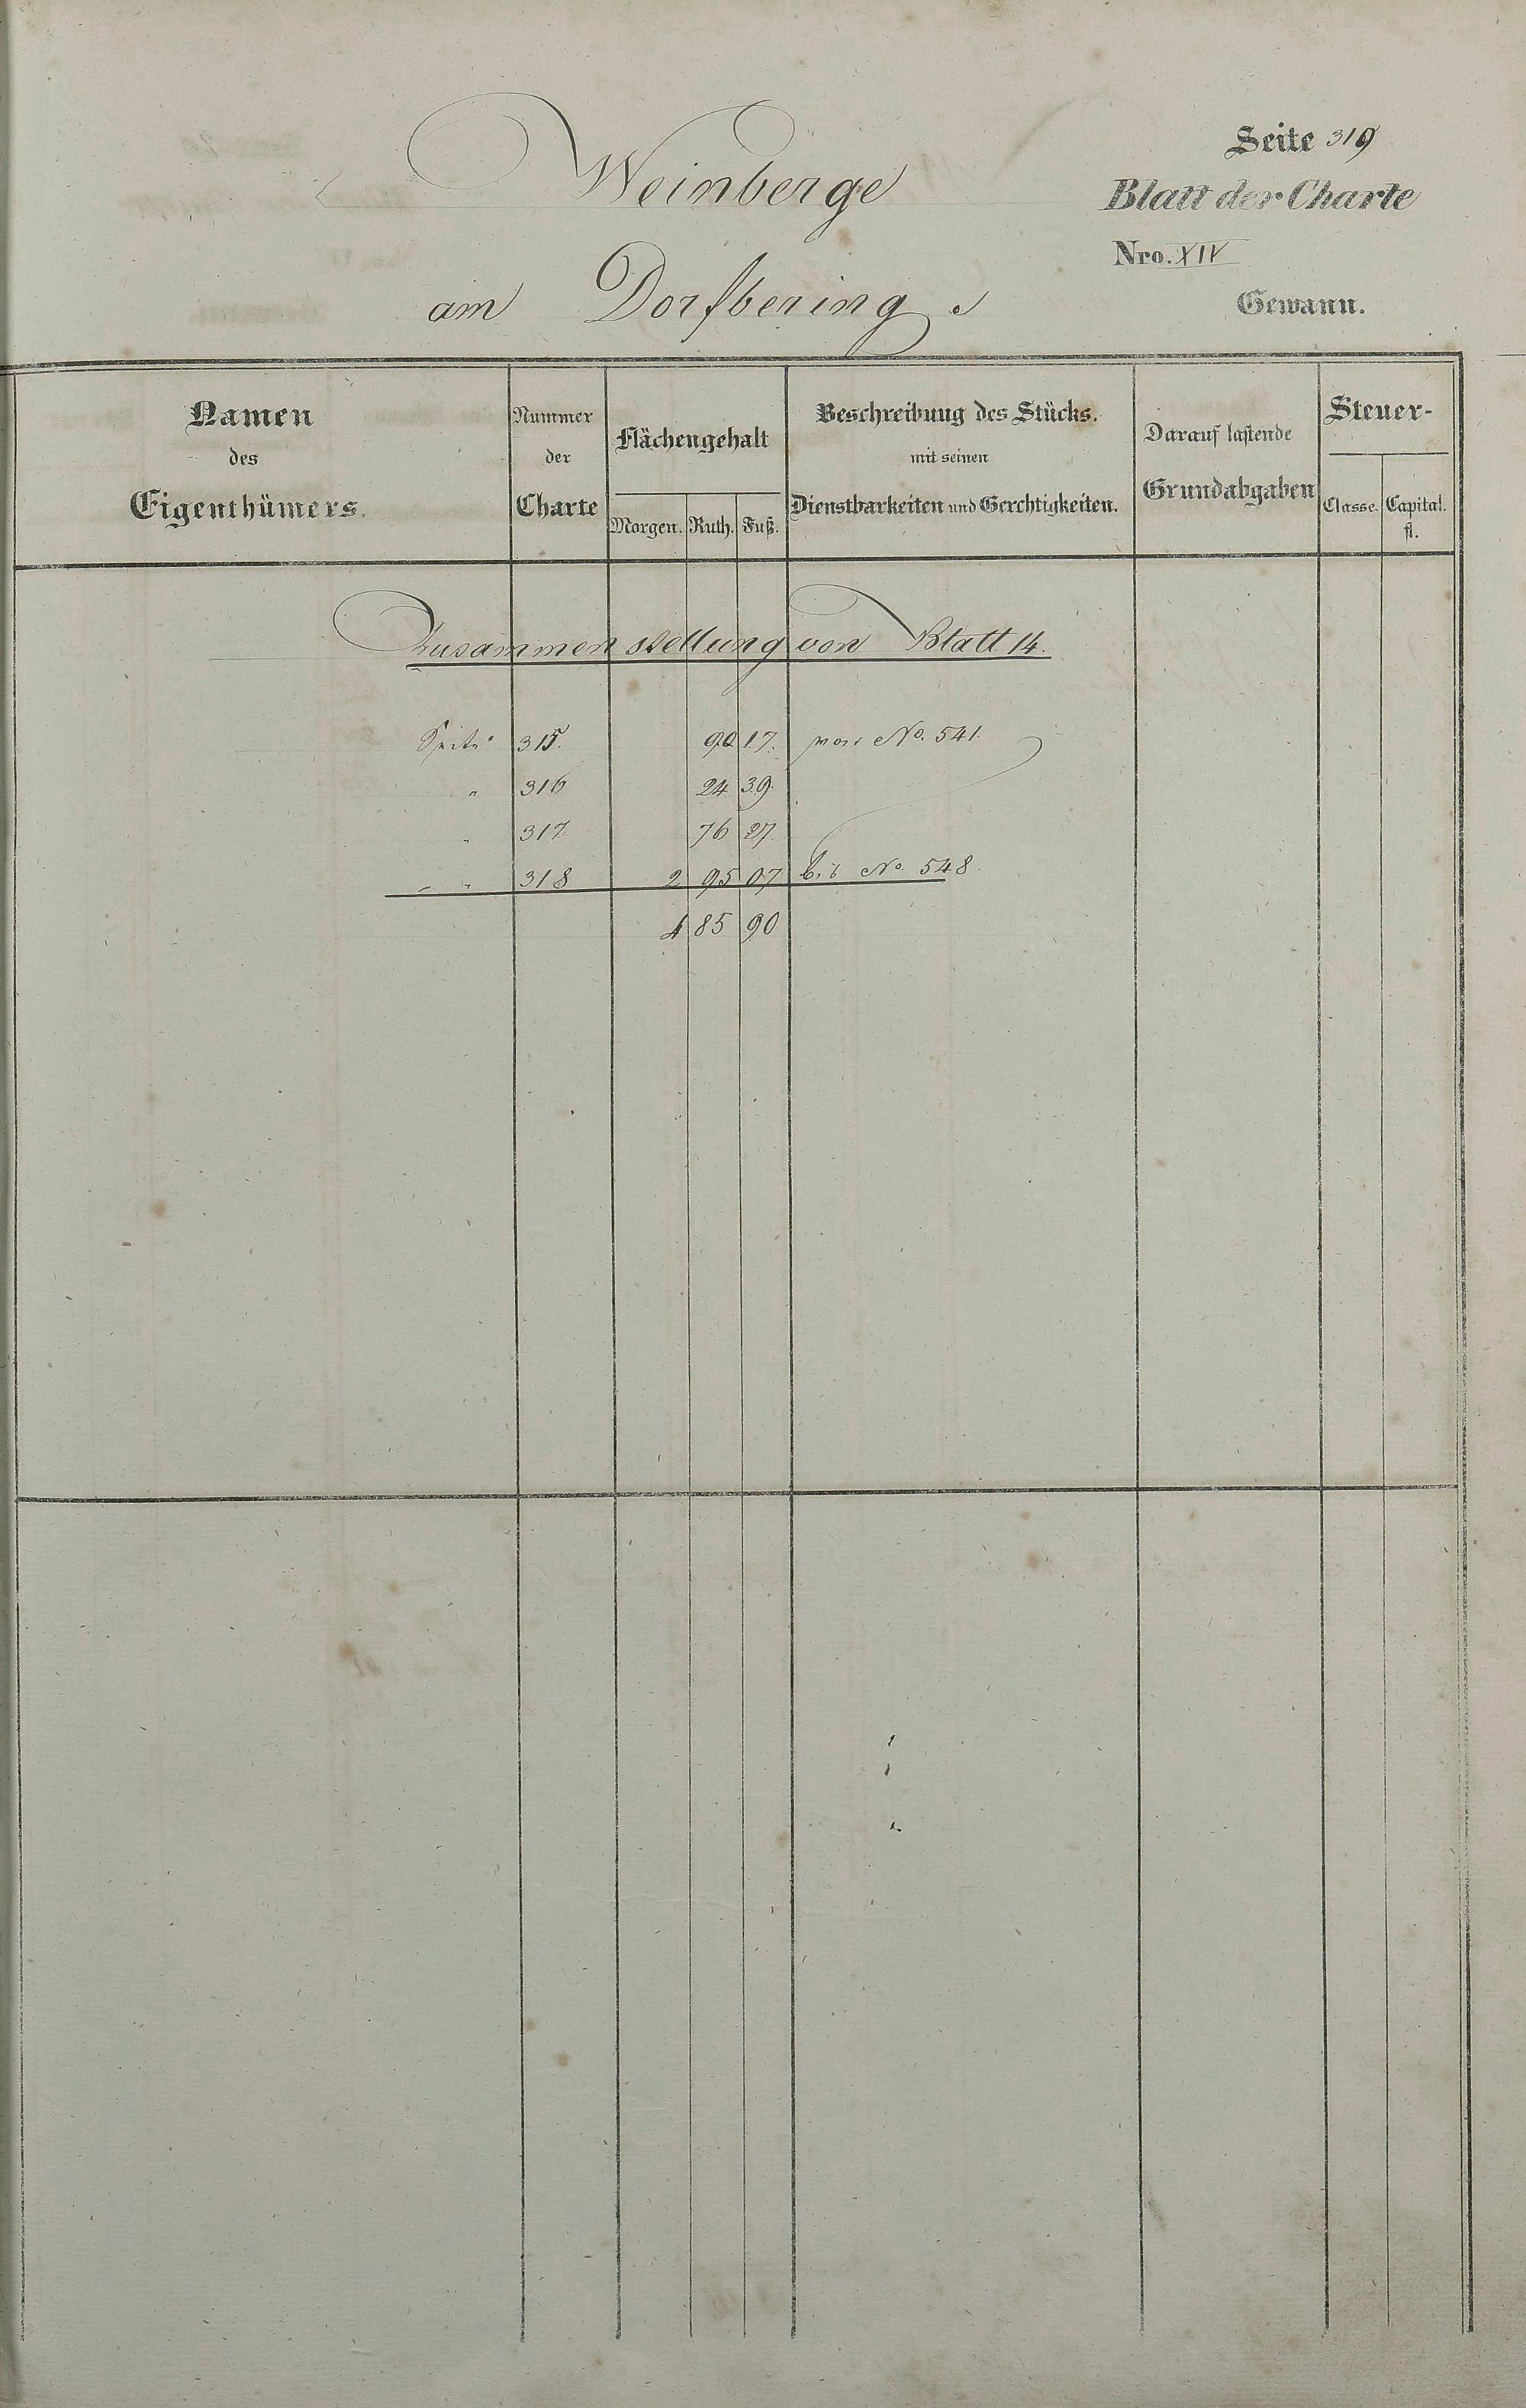 Seite 319
Weinberge
Blatt der Charte
Nro. XIV
am Dorfbering
Gewann.
Namen des Eigenthümers.
Nummer der Charte
Flächengehalt
Morgen. Ruth. Fuß.
Beschreibung des Stücks.
mit seinen
Dienstbarkeiten und Gerechtigkeiten.
Darauf lastende
Grundabgaben
Steuer-
Classe. Capital.
fl.
Zusammenstellung von Blatt 14.
Seite 315. 90 17. von No. 541.
" 316 24 39.
" 317. 76 27
" 318 2 95 07 bis No. 548.
4 85 90